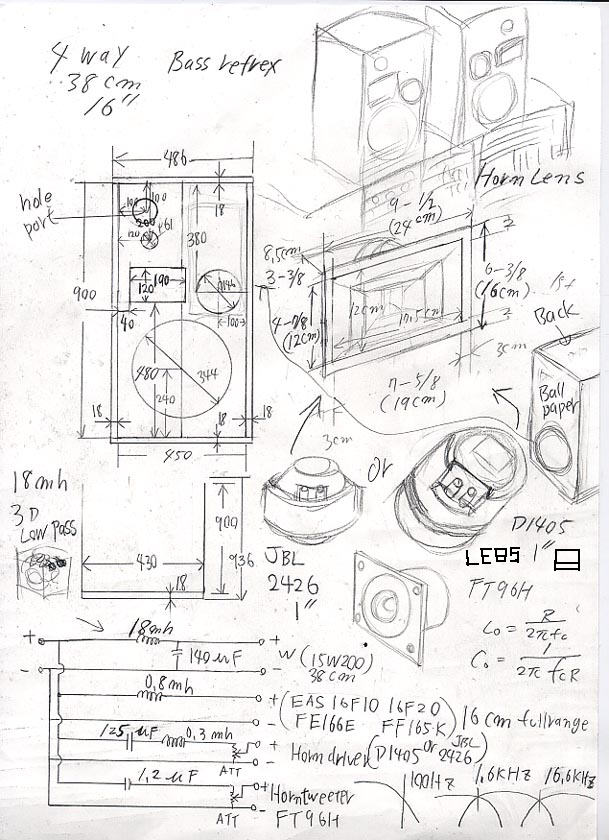 4 way
38 cm
16"
Bass refrex
486
hole
port
100
100
200
120
ø61
18
380
190
120
ø146
900
40
100
480
344
240
18
18
18
450
Horn Lens
9-1/2
(24cm)
8,5cm
3-3/8
4-7/8
(12cm)
12cm
6-3/8
(16cm)
3cm
7-5/8
(19cm)
3cm
Back
Ball
paper
or
18mh
3D
Low pass
900
936
430
18
JBL
2426
1"
D1405
LE85 1"
FT96H
Lo = R / 2πfc
Co = 1 / 2πfcR
+ 18mh +
140uF
- -
W (15W200)
38cm
0,8mh
+
-
(EAS 16F10 16F20
FE166E FF165K)
16cm fullrange
125uF 0,3mh
+
ATT -
Horn driver (D1405 or JBL 2426)
1,2uF
+
ATT -
Horntweeter
FT96H
100HZ 1,6KHZ 16,6KHZ